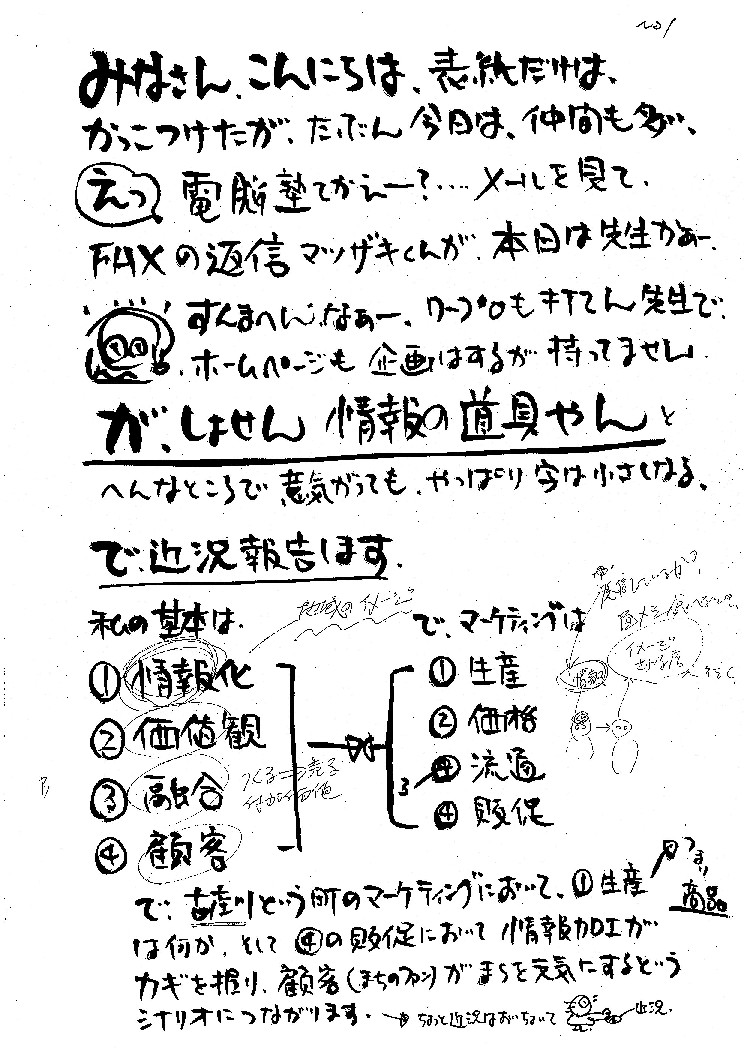 みなさん、こんにちは、表紙だけは、
かっこつけたが、たぶん今日は、仲間も多い、
えっ 電脳塾てかえー?…メールを見て、
FAXの返信マツザキくんが、本日は先生かぁー
すんまへんなぁー、ワープロも打てん先生で、
ホームページも企画はするが持ってません
が、しょせん情報の道具やんと
へんなところで意気がっても、やっぱり字は小さくなる、
で、近況報告します。
私の基本は、
地域のイメージ
① 情報化
② 価値観
③ 融合
④ 顧客
つくる 売る
付加価値
で、マーケティングは
① 生産
② 価格
3 流通
④ 販促
イメージで
情報
で、古座川という町のマーケティングにおいて、① 生産
つまり
商品
は何か、そして④の販促において情報加工が
カギを握り、顧客(まちのファン)がまちを元気にするという
シナリオにつながります。
ちょっと近況はおいちょいて
近況